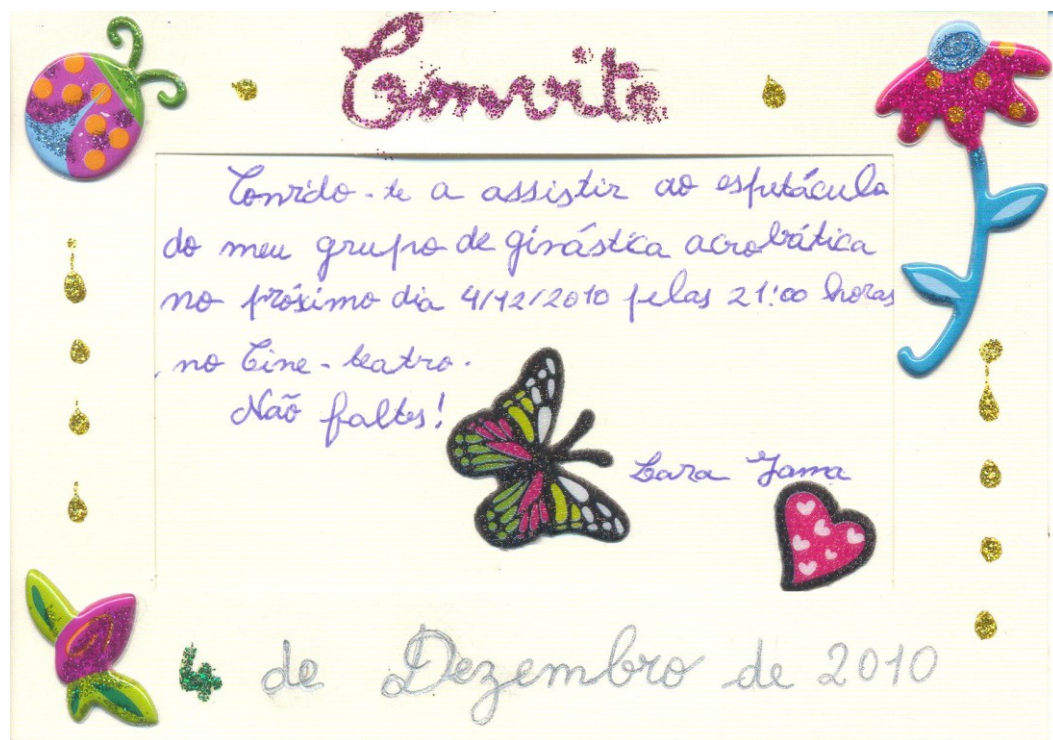 Convite
Convido-te a assistir ao espetáculo
do meu grupo de ginástica acrobática
no próximo dia 4/12/2010 pelas 21:00 horas
no Cine-teatro.
Não faltes!
Lara
4 de Dezembro de 2010